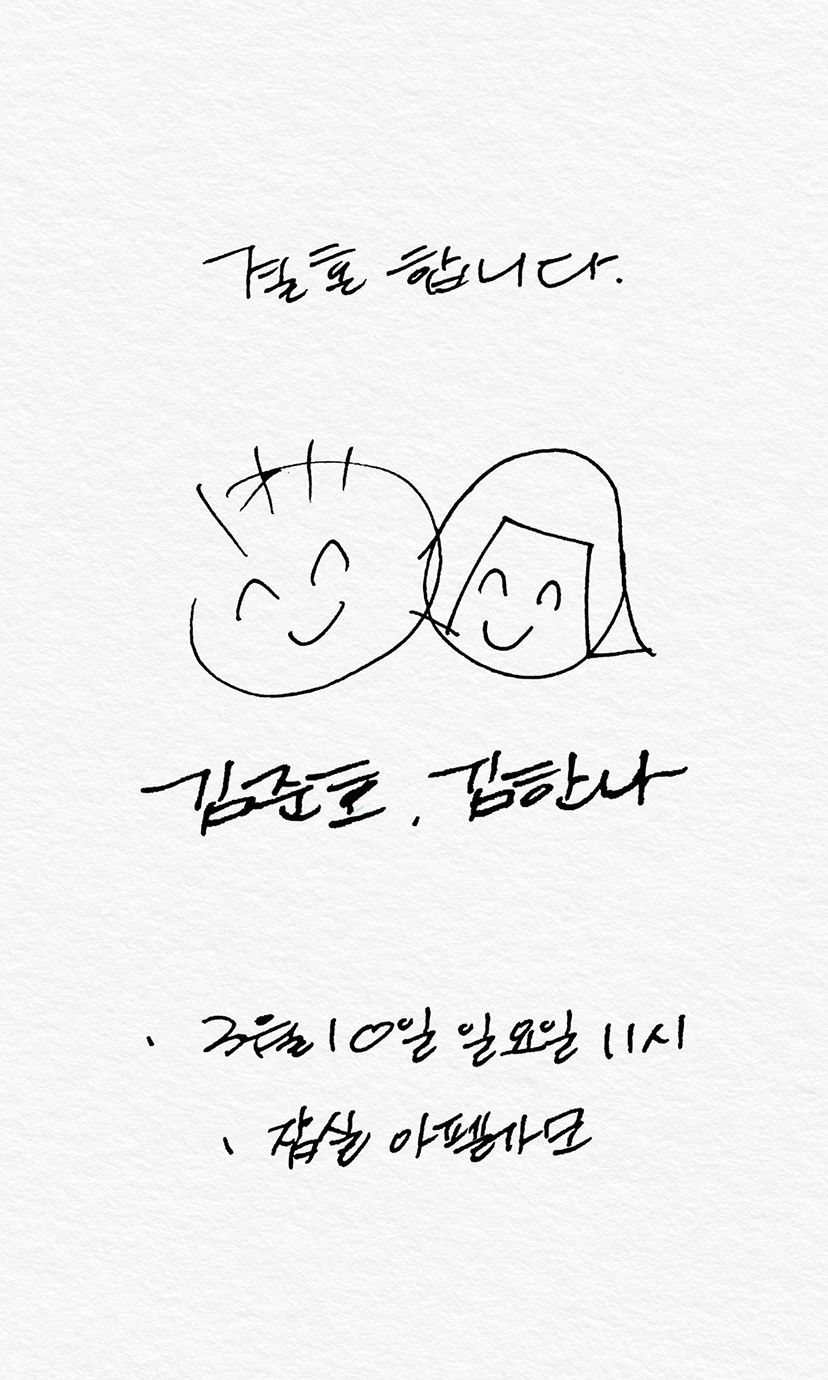 결혼 합니다.
김준호, 김한나
· 3월 10일 일요일 11시
· 잠실 아펠가모